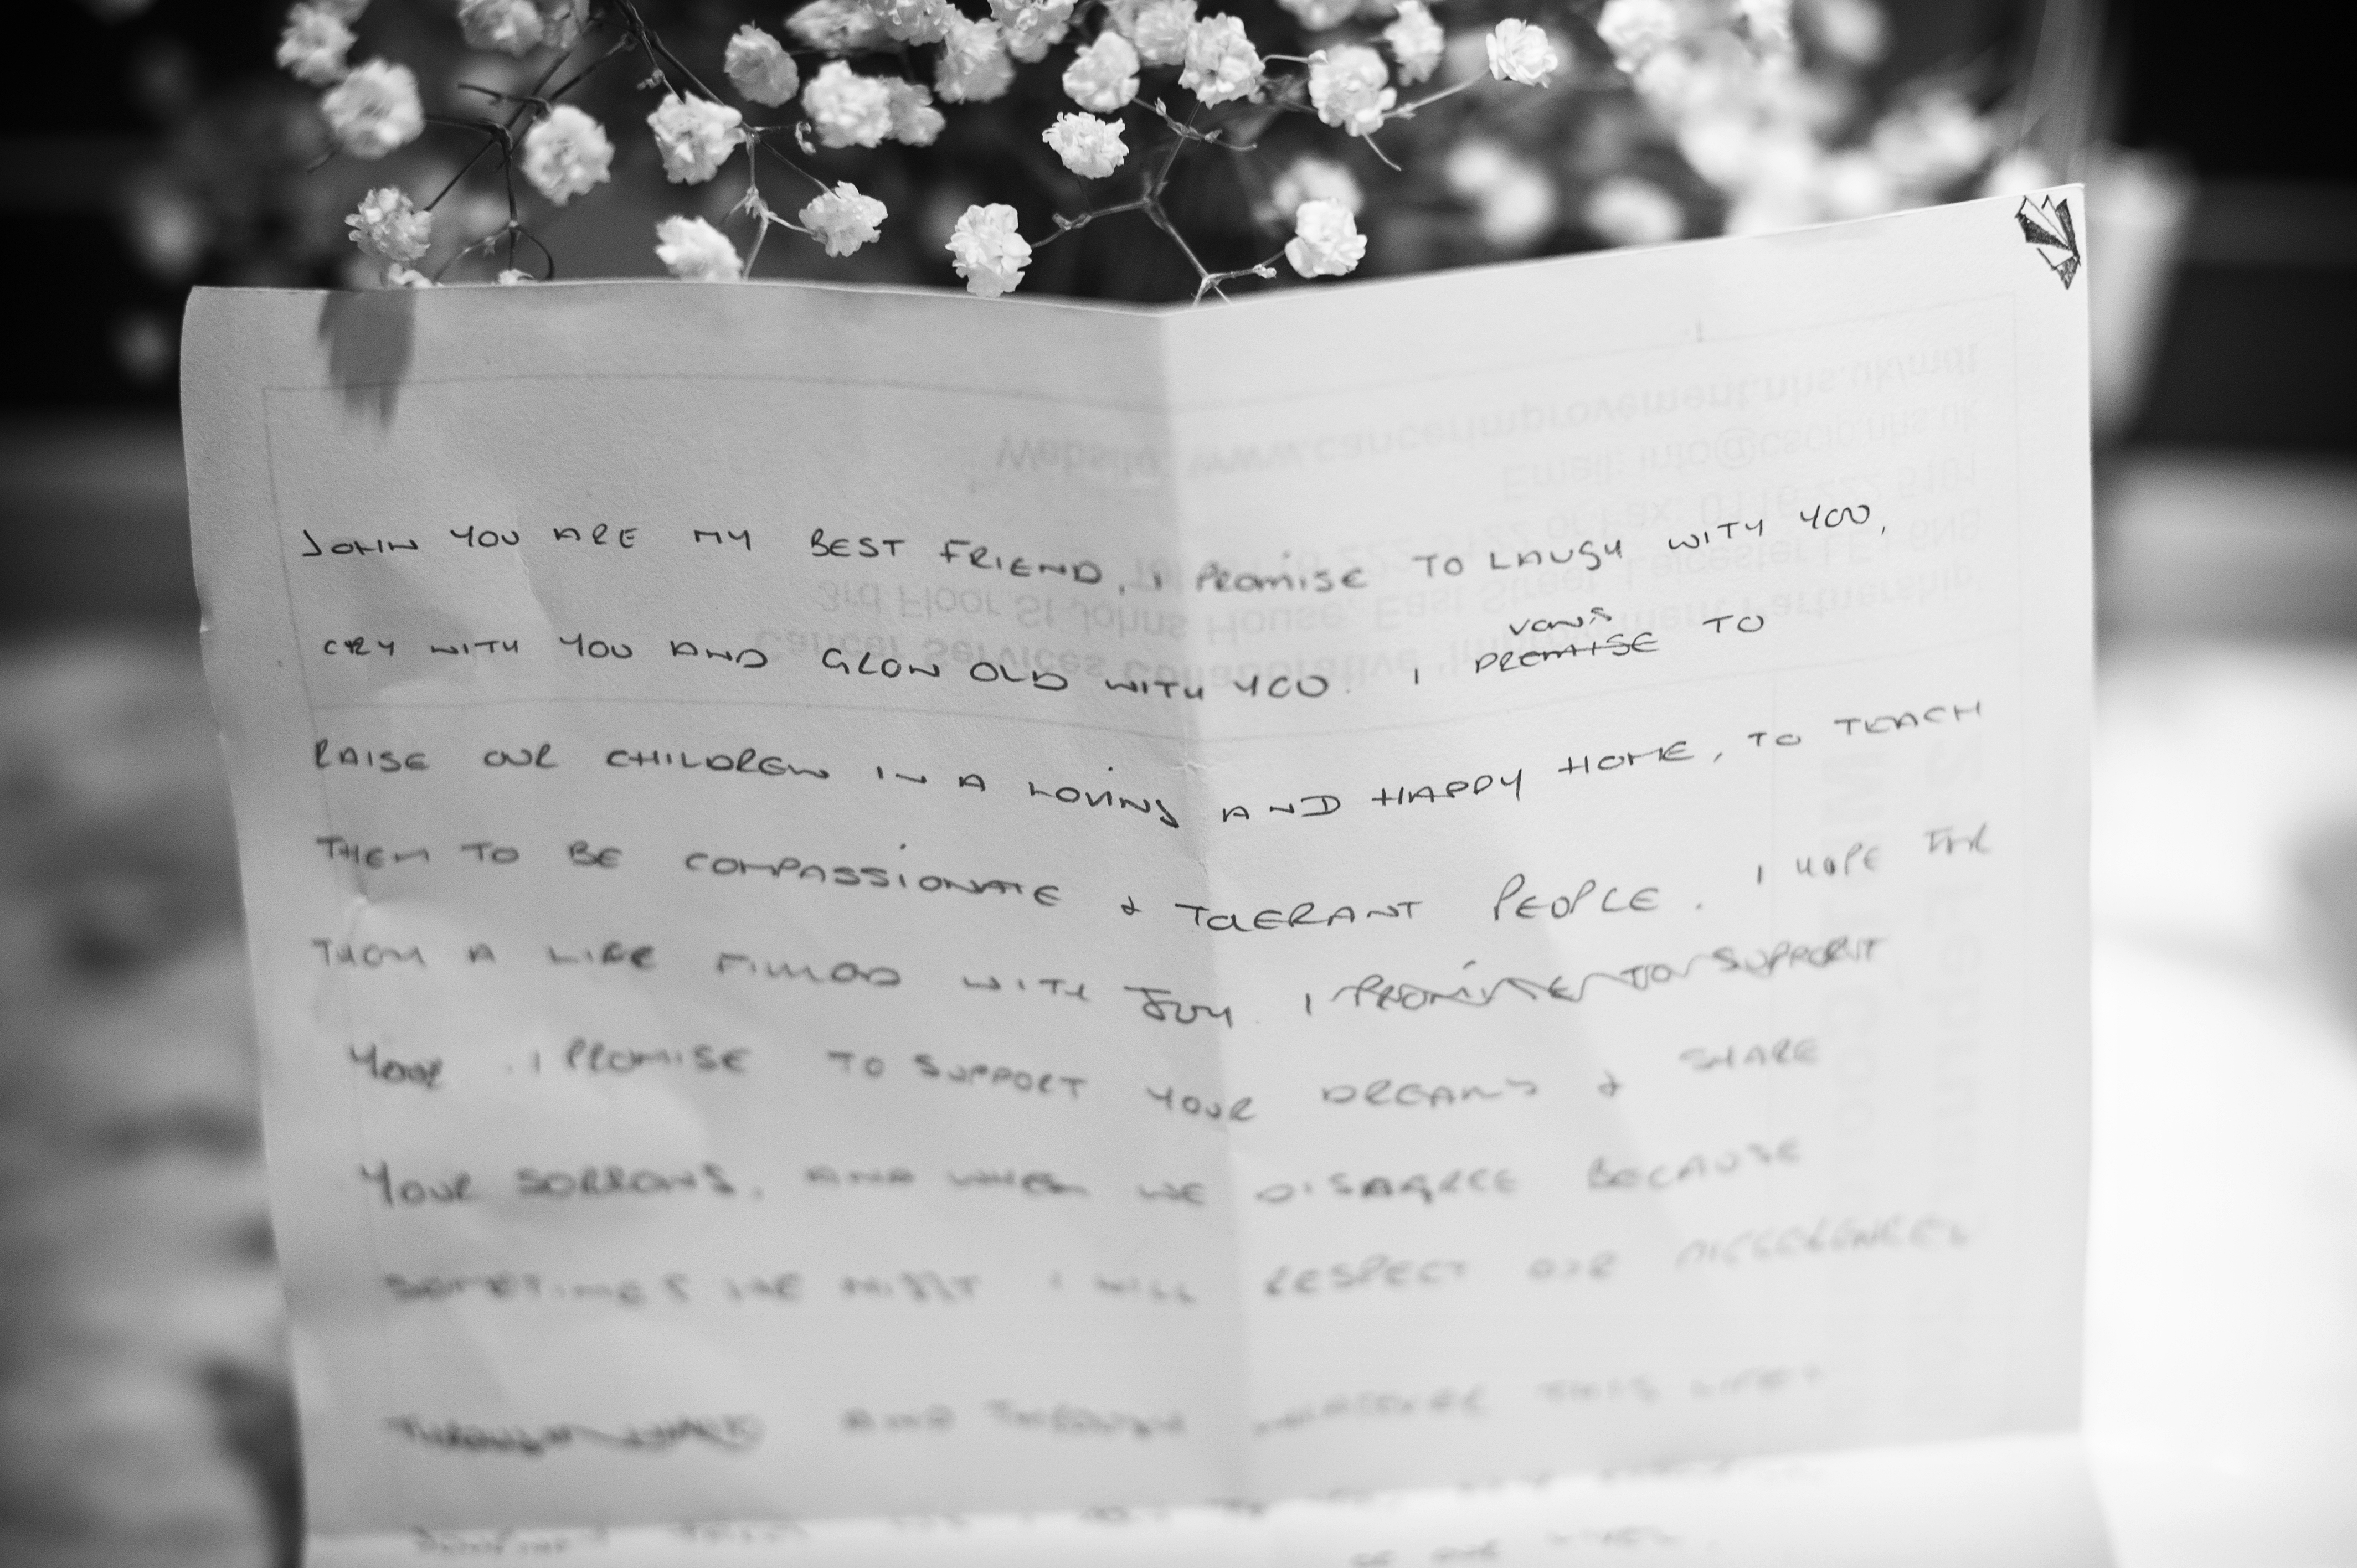 JOHN YOU ARE MY BEST FRIEND, I PROMISE TO LAUGH WITH YOU,
CRY WITH YOU AND GROW OLD WITH YOU. I PROMISE VOWS TO
RAISE OUR CHILDREN IN A LOVING AND HAPPY HOME, TO TEACH
THEM TO BE COMPASSIONATE & TOLERANT PEOPLE. I HOPE FOR
THEM A LIFE FILLED WITH JOY. I PROMISE TO SUPPORT
YOUR . I PROMISE TO SUPPORT YOUR DREAMS & SHARE
YOUR SORROWS, AND WHEN WE DISAGREE BECAUSE
SOMETIMES WE MIGHT I WILL RESPECT OUR DIFFERENCES
AND THROUGH WHATEVER THIS LIFE
Cancer Services Collaborative 'Improvement Partnership'
3rd Floor St Johns House, East Street, Leicester LE1 6NB
or Fax: 0116 222 5101
Email: info@cscip.nhs.uk
Website: www.cancerimprovement.nhs.uk/mdt